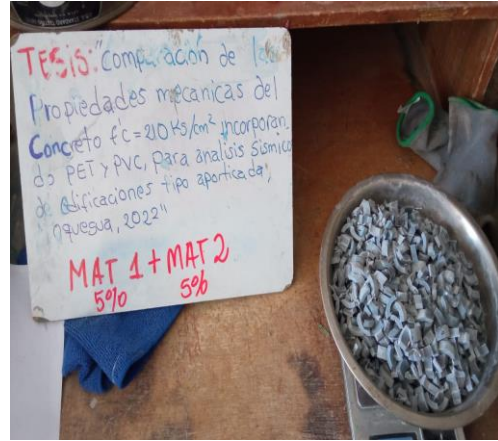 TESIS: "Comparación de las
Propiedades mecanicas del
Concreto f'c=210 Kg/cm² incorporan
do PET y PVC, para analisis Sismico
de Edificaciones tipo aporticada,
oquegua, 2022"
MAT 1 + MAT 2
5% 5%